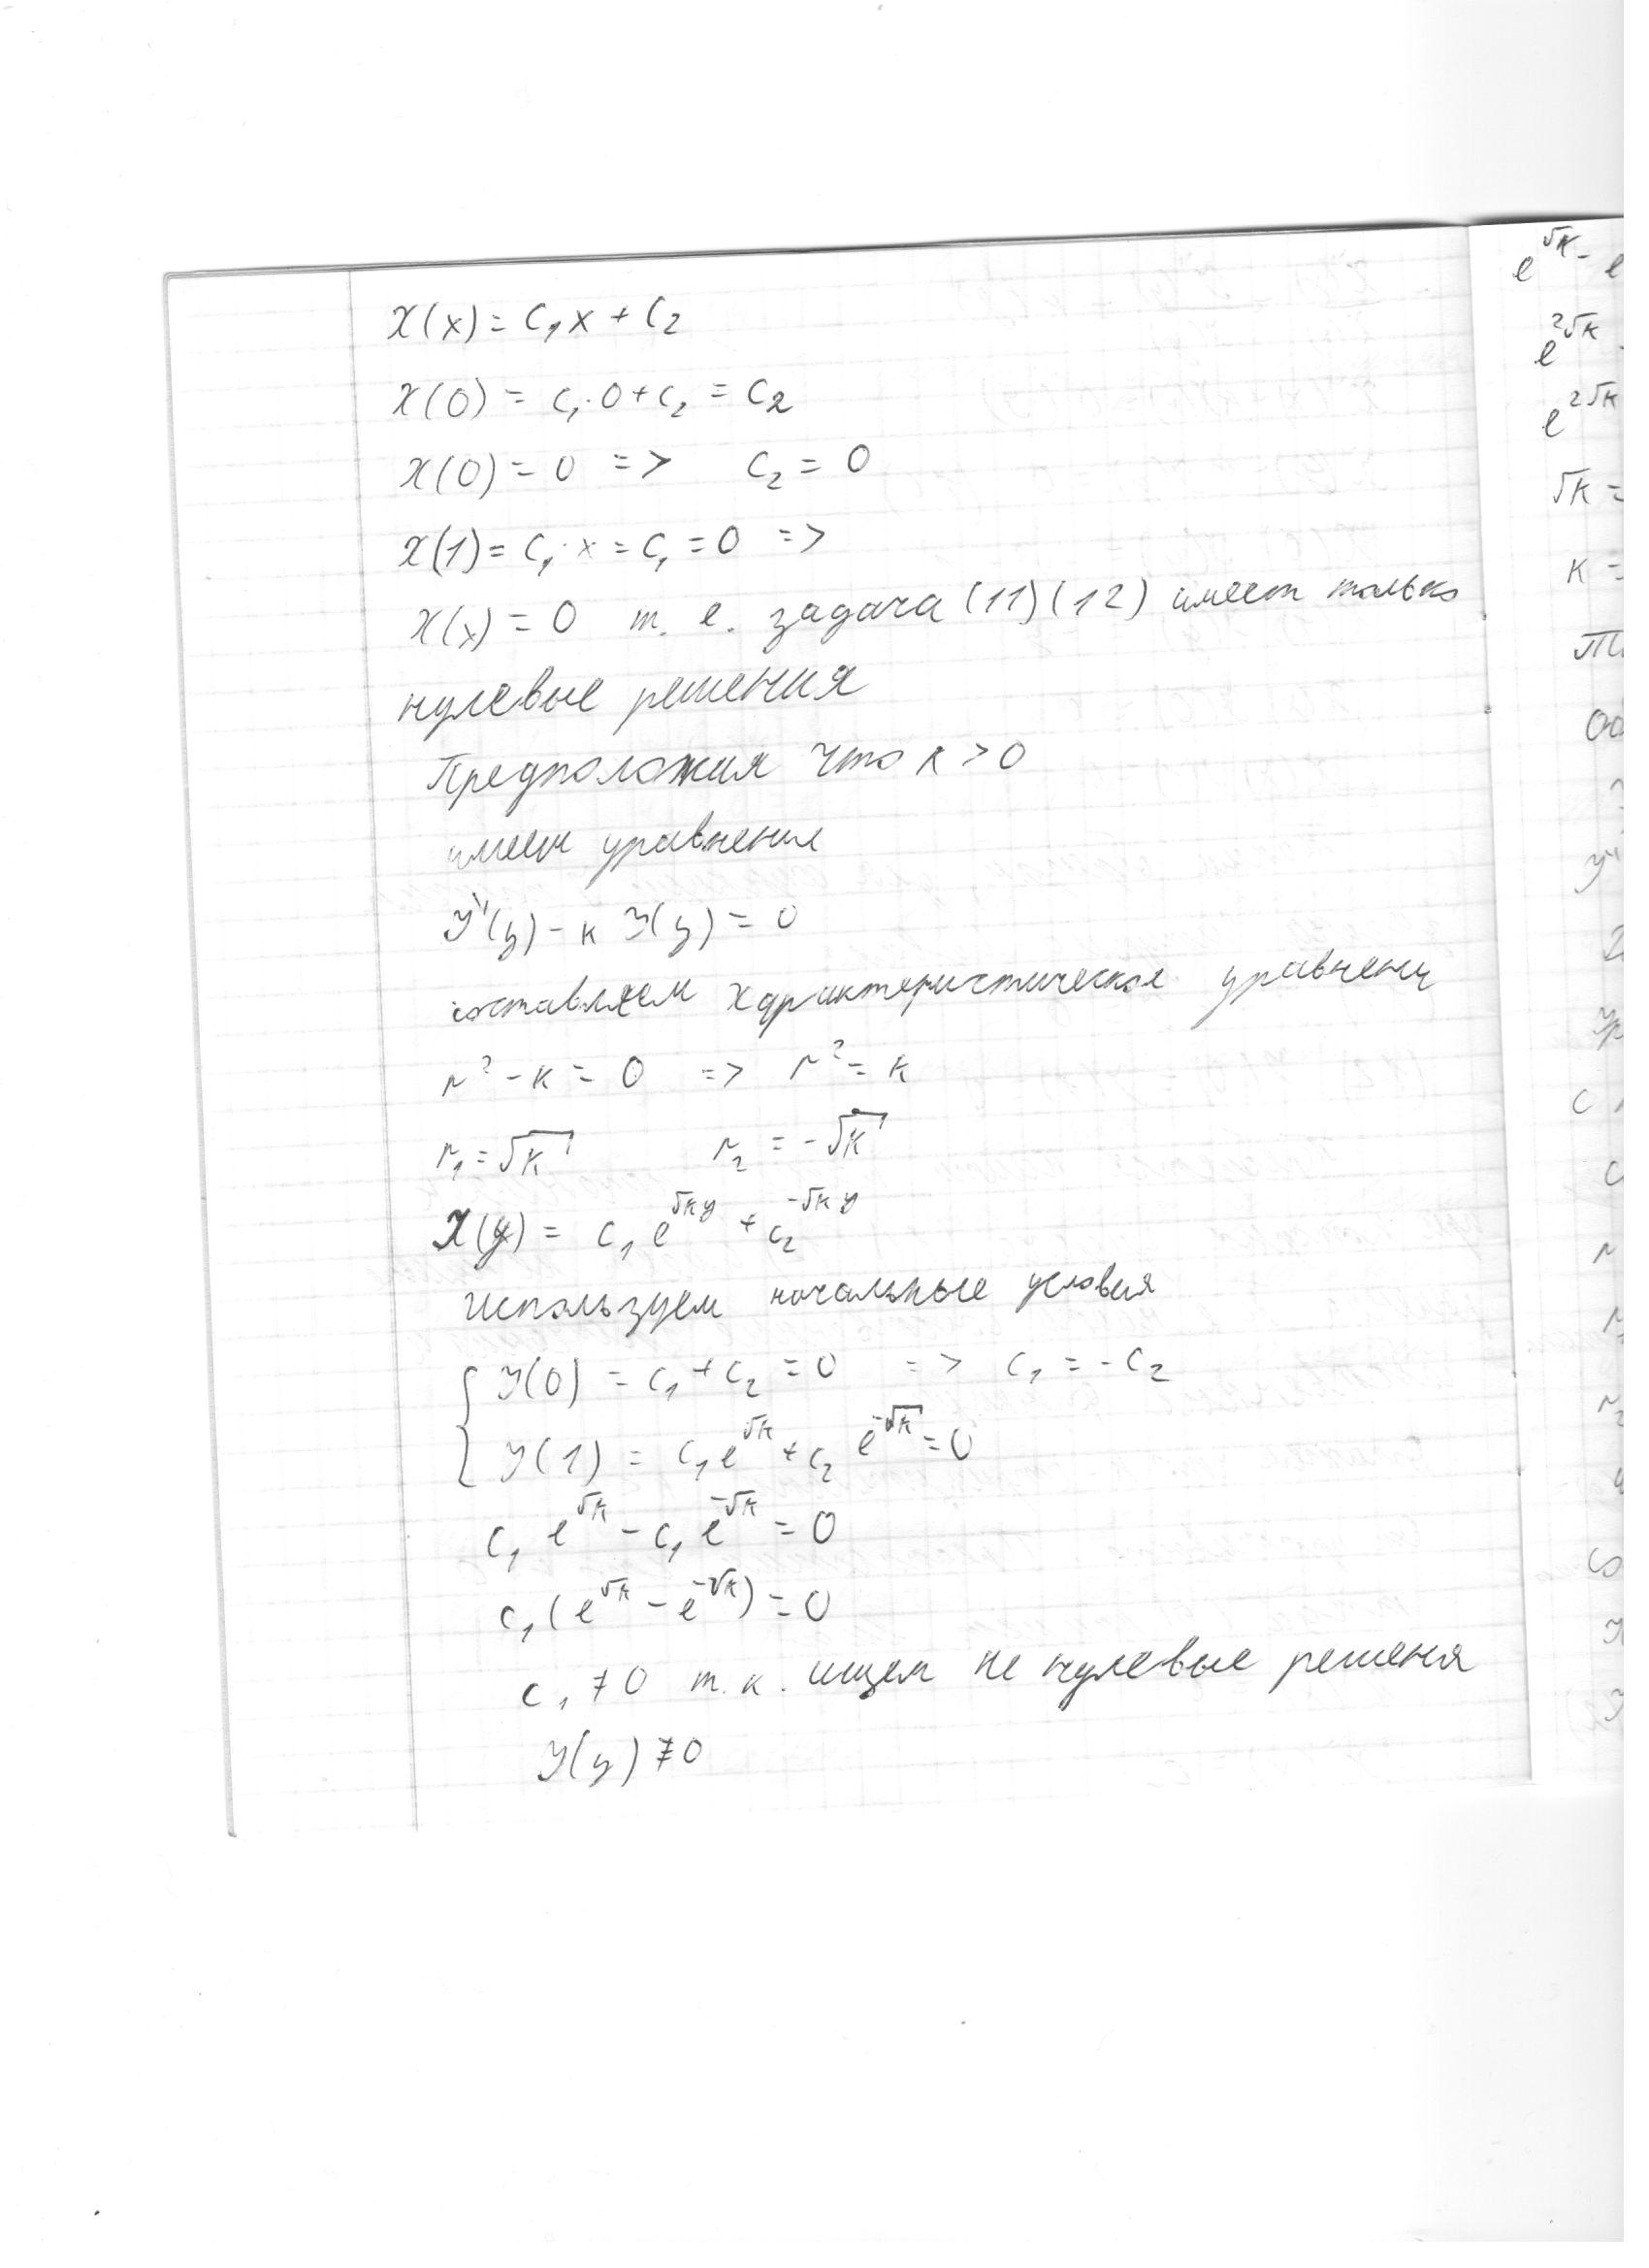 X(x) = C₁x + C₂
X(0) = C₁·0 + C₂ = C₂
X(0) = 0 => C₂ = 0
X(1) = C₁·x = C₁ = 0 =>
X(x) = 0 т. е. задача (11)(12) имеет только
нулевые решения
Предположим что к > 0
имеем уравнение
Y''(y) - к Y(y) = 0
составляем характеристическое уравнени
r² - к = 0 => r² = к
r₁ = √к r₂ = -√к
X(y) = C₁ e^(√к y) + C₂^(-√к y)
используем начальные условия
{ Y(0) = C₁ + C₂ = 0 => C₁ = -C₂
Y(1) = C₁ e^(√к) + C₂ e^(-√к) = 0
C₁ e^(√к) - C₁ e^(-√к) = 0
C₁ (e^(√к) - e^(-√к)) = 0
C₁ ≠ 0 т. к. ищем не нулевые решеня
Y(y) ≢ 0
e^(√к) - e
e^(2√к)
e^(2√к)
√к =
к =